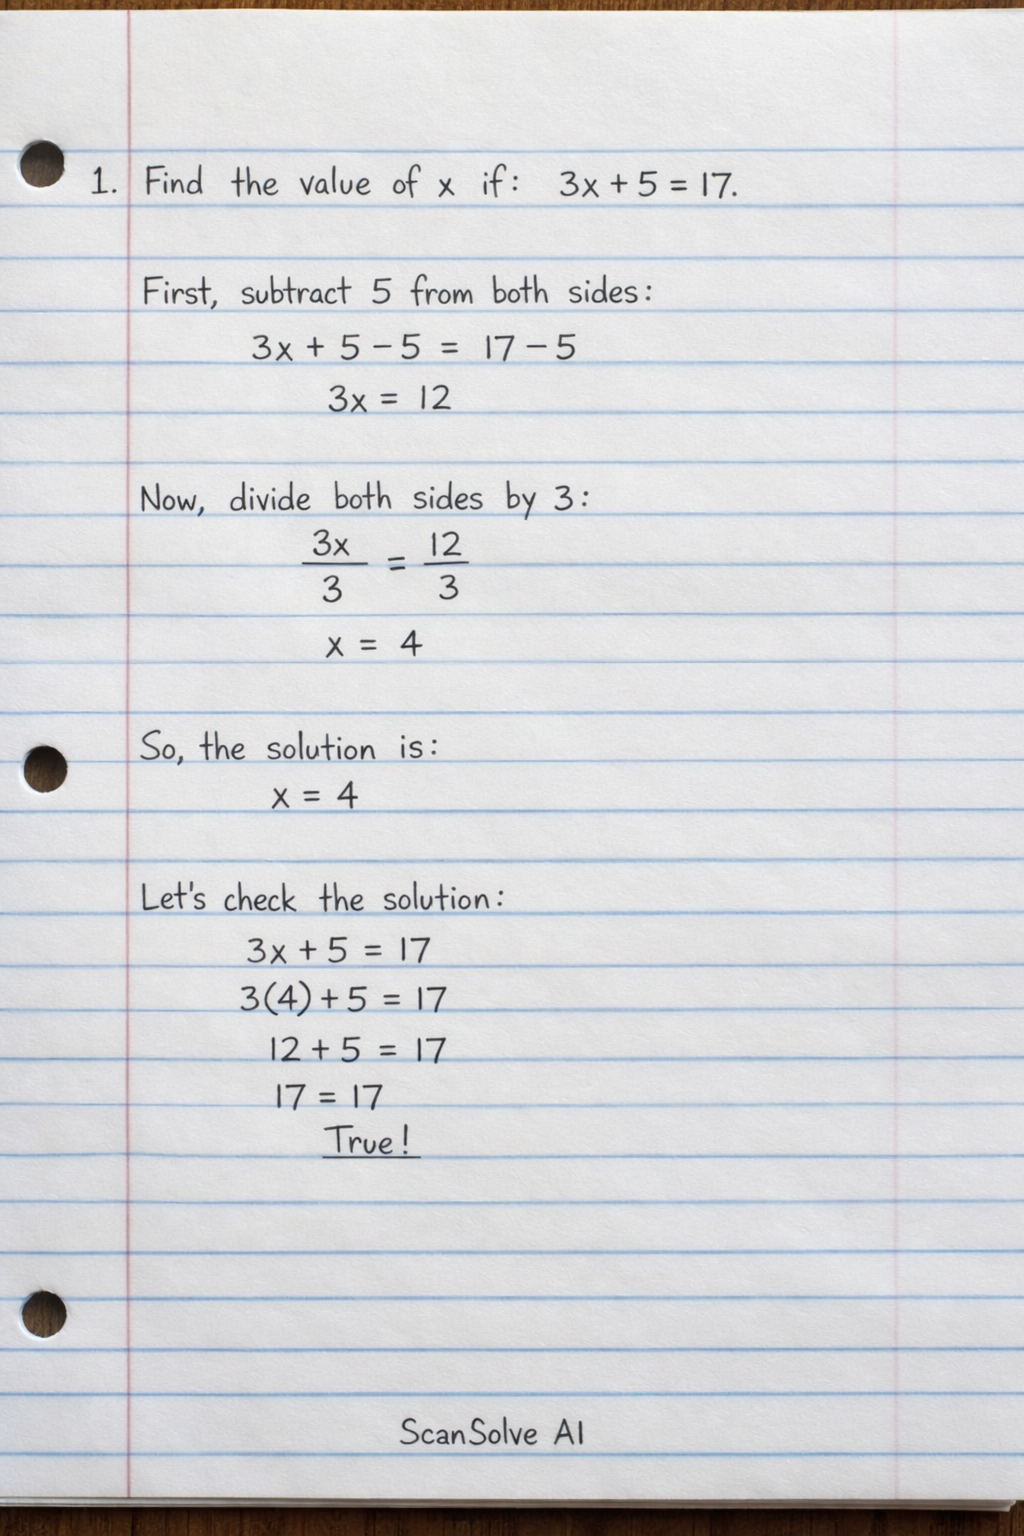 1. Find the value of x if: 3x + 5 = 17.
First, subtract 5 from both sides:
3x + 5 - 5 = 17 - 5
3x = 12
Now, divide both sides by 3:
3x/3 = 12/3
x = 4
So, the solution is:
x = 4
Let's check the solution:
3x + 5 = 17
3(4) + 5 = 17
12 + 5 = 17
17 = 17
True!
ScanSolve AI